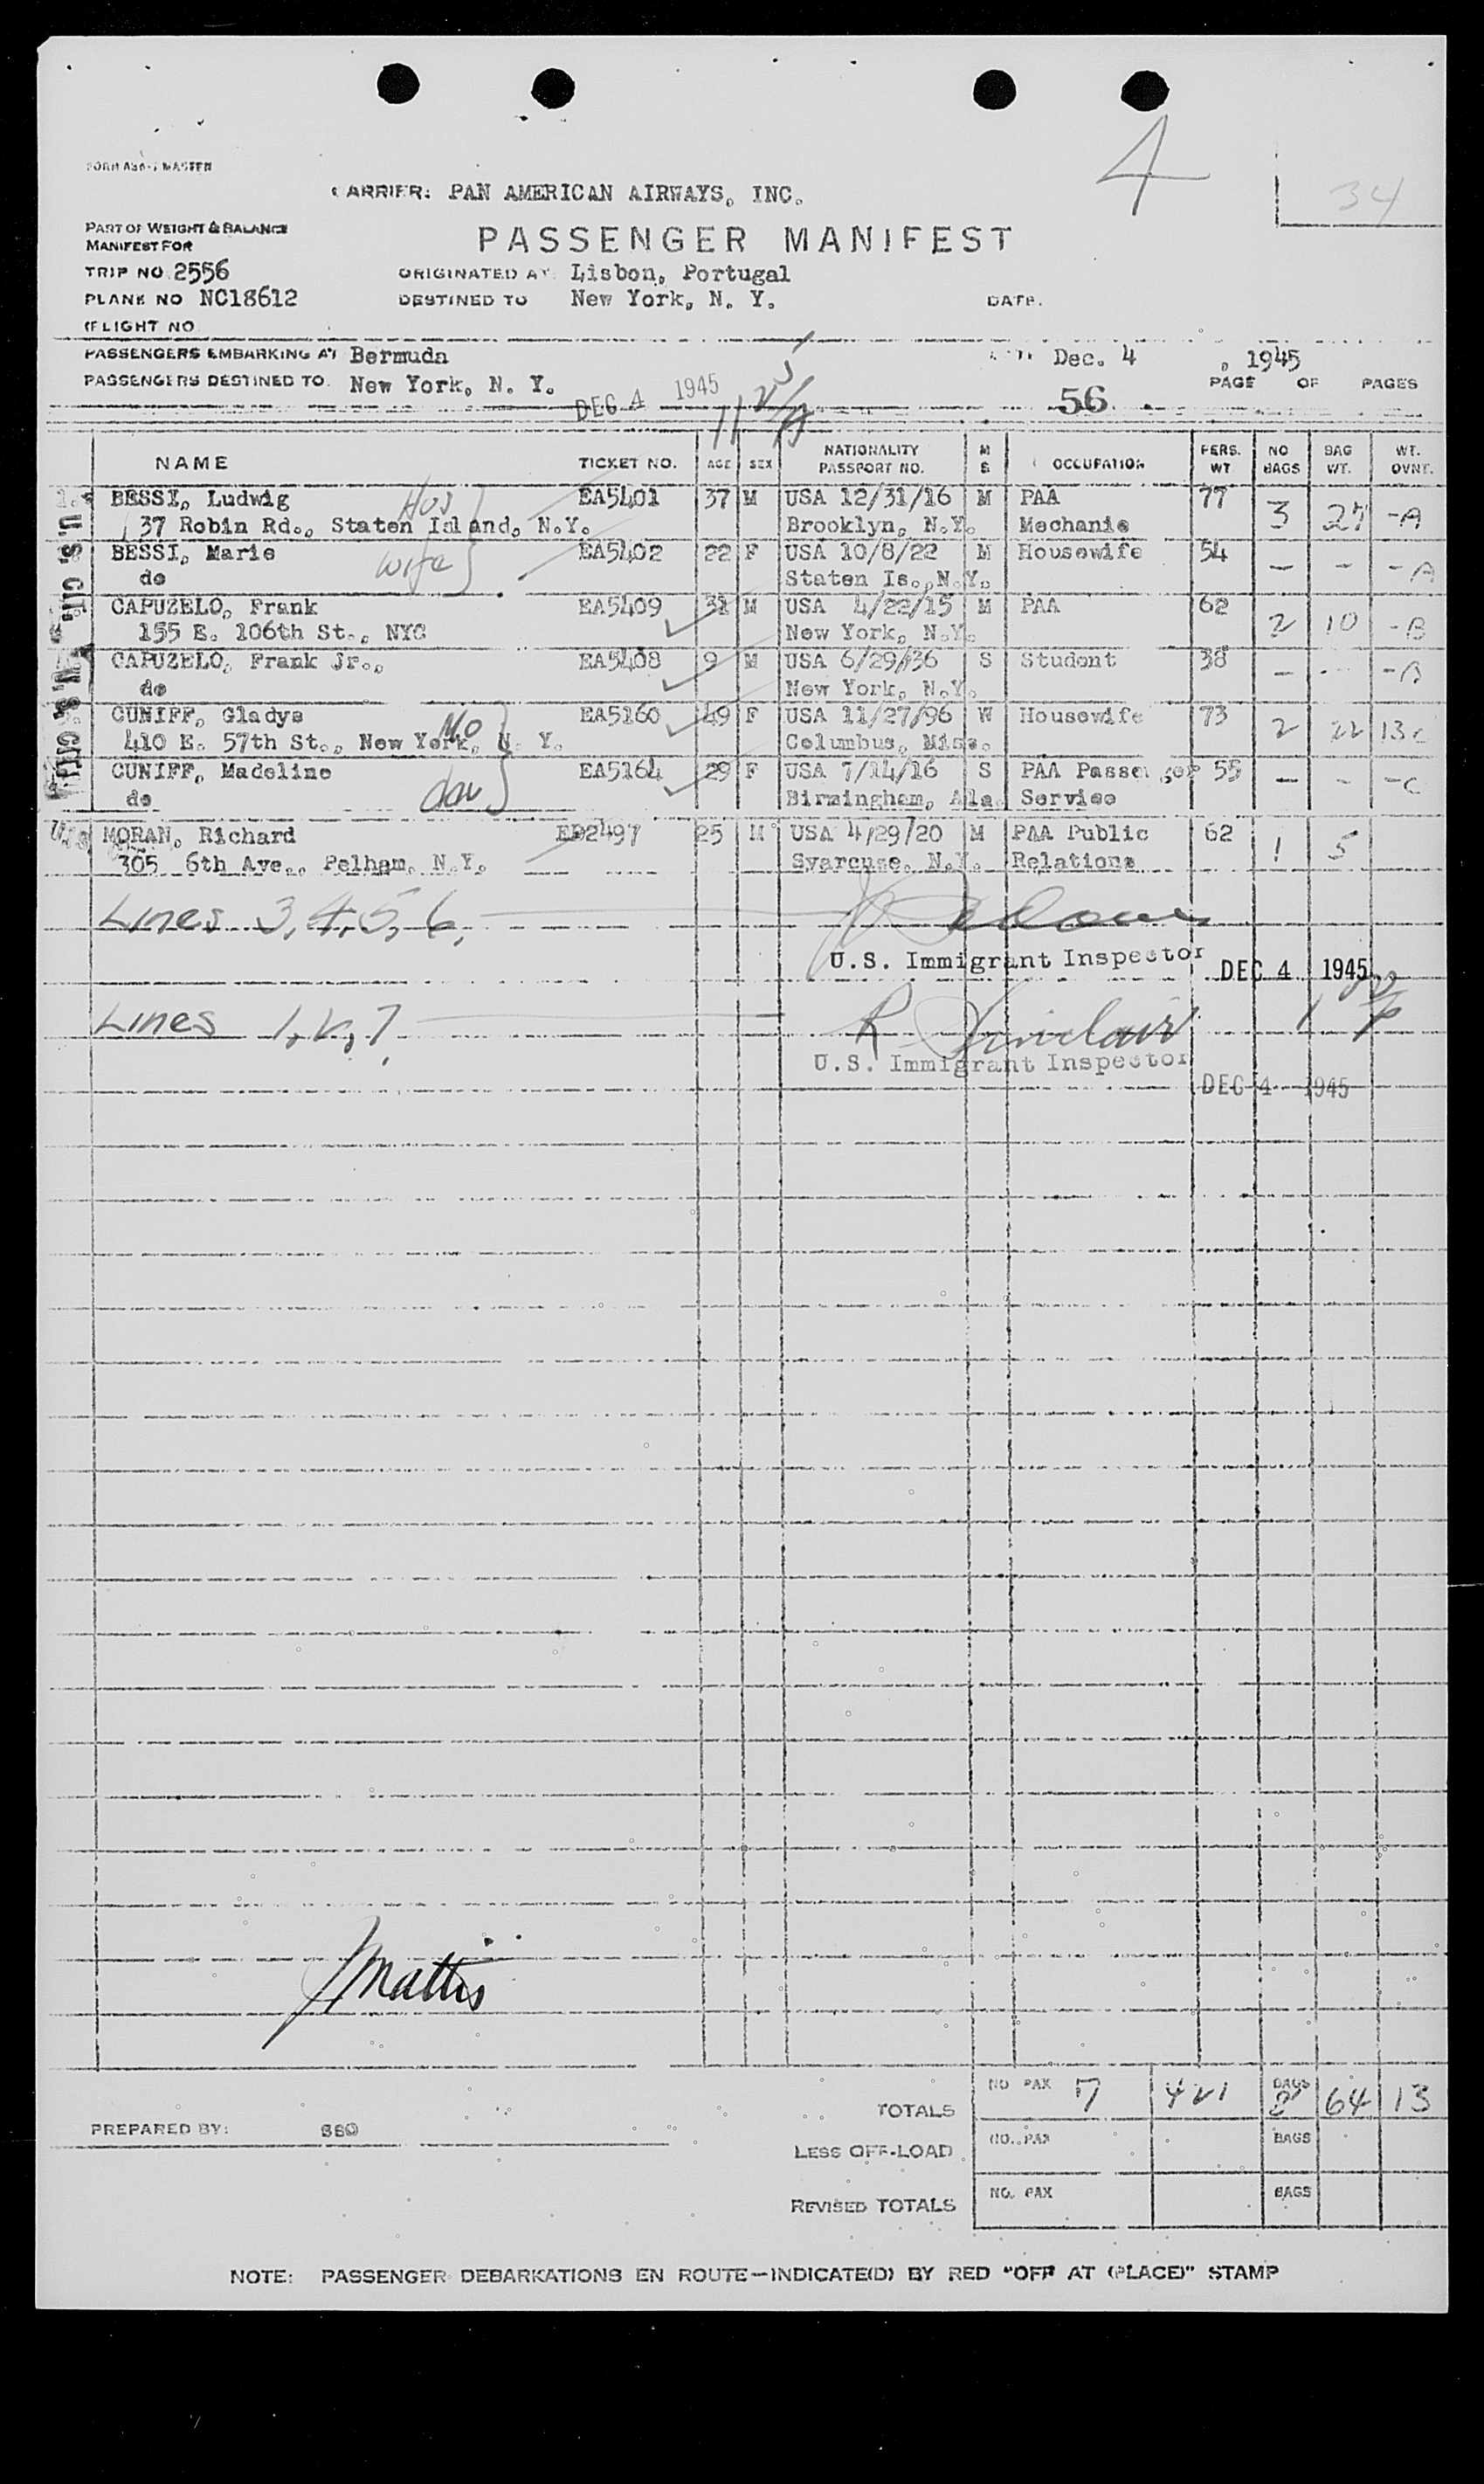 FORM ASA-7 MASTER
4
34
CARRIER: PAN AMERICAN AIRWAYS, INC.
PART OF WEIGHT & BALANCE
MANIFEST FOR
PASSENGER MANIFEST
TRIP NO. 2556 ORIGINATED AT Lisbon, Portugal
PLANE NO NC18612 DESTINED TO New York, N. Y. DATE.
(FLIGHT NO
PASSENGERS EMBARKING AT Bermuda Dec. 4, 1945
PASSENGERS DESTINED TO New York, N. Y. DEC 4 1945 PAGE OF PAGES
56
NAME TICKET NO. AGE SEX NATIONALITY PASSPORT NO. M S OCCUPATION PERS. WT NO BAGS BAG WT. WT. OVNT.
BESSI, Ludwig Hus EA5401 37 M USA 12/31/16 M PAA 77 3 27 -A
37 Robin Rd., Staten Island, N.Y. Brooklyn, N.Y. Mechanic
BESSI, Marie wife EA5402 22 F USA 10/8/22 M Housewife 54 - - -A
do Staten Is., N.Y.
CAPUZELO, Frank EA5409 31 M USA 4/22/15 M PAA 62 2 10 -B
155 E. 106th St., NYC New York, N.Y.
CAPUZELO, Frank Jr., EA5408 9 M USA 6/29/36 S Student 38 - - -B
do New York, N.Y.
CUNIFF, Gladys Mo EA5160 49 F USA 11/27/96 W Housewife 73 2 22 13 C
410 E. 57th St., New York, N. Y. Columbus, Miss.
CUNIFF, Madeline dau EA5164 29 F USA 7/14/16 S PAA Passenger 55 - - -C
do Birmingham, Ala. Service
MORAN, Richard ED2497 25 M USA 4/29/20 M PAA Public 62 1 5
305 6th Ave., Pelham, N.Y. Syarcuse, N.Y. Relations
U.S. CIT.
Lines 3, 4, 5, 6,
U.S. Immigrant Inspector DEC 4 1945
Lines 1, 2, 7 R Sinclair
U.S. Immigrant Inspector
DEC 4 1945
JMattis
TOTALS NO PAX 7 421 BAGS 8 64 13
PREPARED BY:
LESS OFF-LOAD NO. PAX BAGS
REVISED TOTALS NO. PAX BAGS
NOTE: PASSENGER DEBARKATIONS EN ROUTE—INDICATE(D) BY RED "OFF AT (PLACE)" STAMP